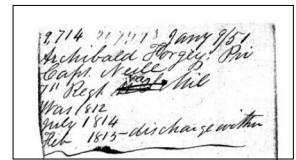 2,714 Jany 9/51
Archibald Forgey, Pri
Capt. Neill
7" Regt Mil
War 1812
July 1814
Feb 1815-discharge within